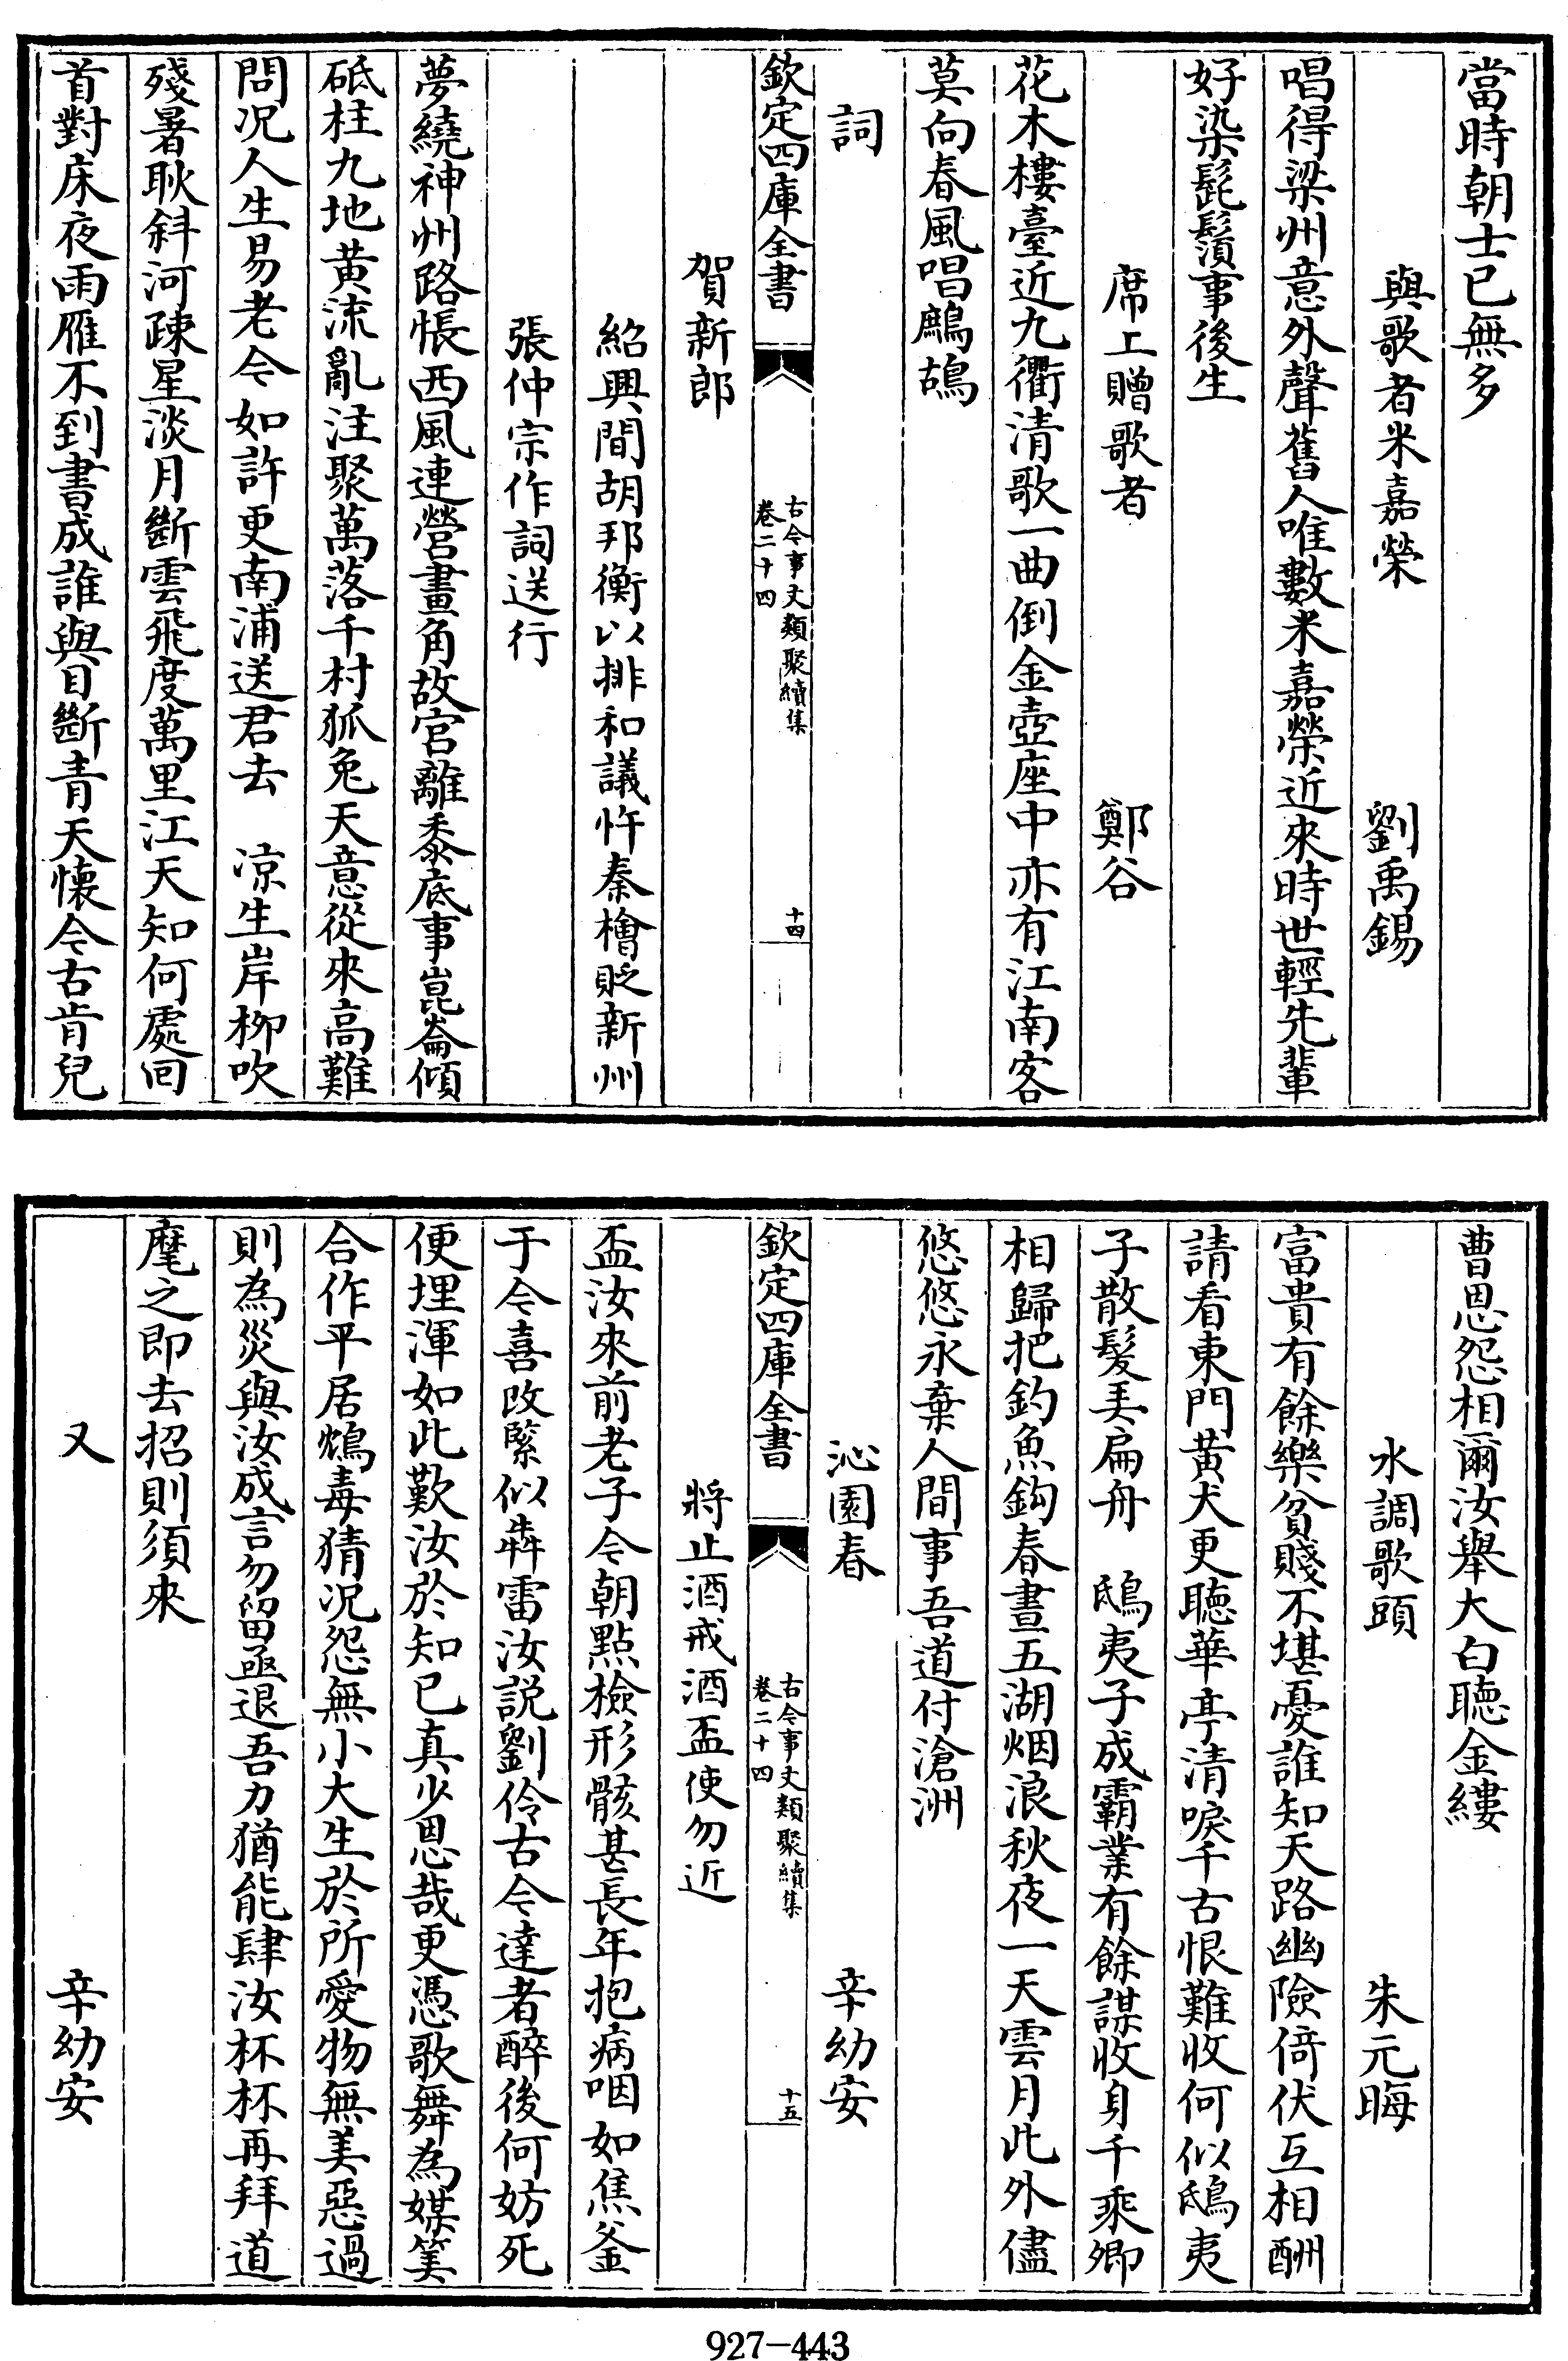 當時朝士已無多
與歌者米嘉榮　劉禹錫
唱得梁州意外聲舊人唯數米嘉榮近來時世輕先輩
好染髭鬚事後生
席上贈歌者　鄭谷
花木樓臺近九衢清歌一曲倒金壺座中亦有江南客
莫向春風唱鷓鴣
詞
欽定四庫全書
古今事文類聚續集
卷二十四
十四
賀新郎
紹興間胡邦衡以排和議忤秦檜貶新州
張仲宗作詞送行
夢繞神州路悵西風連營畫角故宮離黍底事崑崙傾
砥柱九地黄流亂注聚萬落千村狐兔天意從來高難
問况人生易老今如許更南浦送君去　凉生岸柳吹
殘暑耿斜河疎星淡月斷雲飛度萬里江天知何處回
首對床夜雨雁不到書成誰與目斷青天懐今古肯兒
曹恩怨相爾汝舉大白聴金縷
水調歌頭　朱元晦
富貴有餘樂貧賤不堪憂誰知天路幽險倚伏互相酬
請看東門黄犬更聴華亭清唳千古恨難收何似鴟夷
子散髮弄扁舟　鴟夷子成霸業有餘謀收身千乘卿
相歸把釣魚鈎春晝五湖烟浪秋夜一天雲月此外儘
悠悠永棄人間事吾道付滄洲
沁園春　辛幼安
欽定四庫全書
古今事文類聚續集
卷二十四
十五
將止酒戒酒盃使勿近
盃汝來前老子今朝點檢形骸甚長年抱病咽如焦釜
于今喜改緊似犇雷汝説劉伶古今達者醉後何妨死
便埋渾如此歎汝於知已真少恩哉更憑歌舞為媒筭
合作平居鴆毒猜况怨無小大生於所愛物無美惡過
則為災與汝成言勿留亟退吾力猶能肆汝杯杯再拜道
麾之即去招則須來
又　辛幼安
927-443